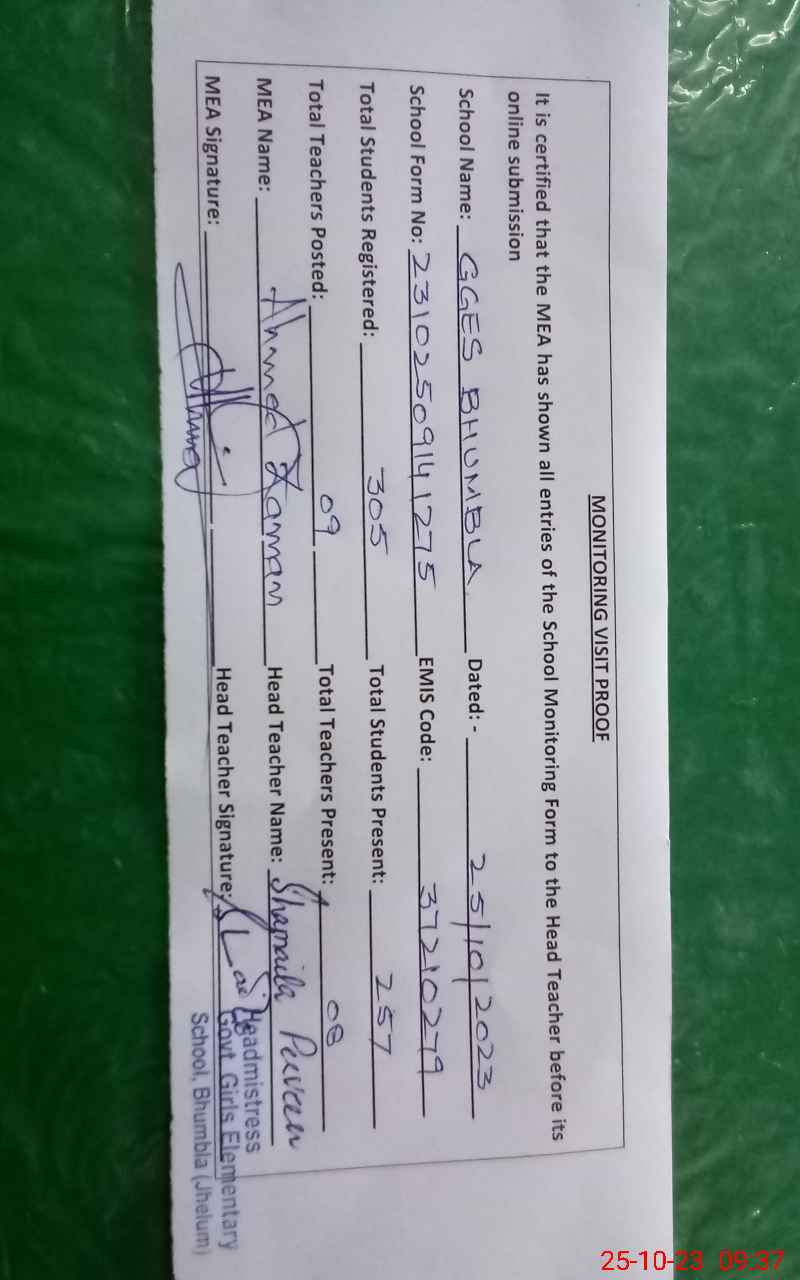 MONITORING VISIT PROOF
It is certified that the MEA has shown all entries of the School Monitoring Form to the Head Teacher before its
online submission
School Name: GGES BHUMBLA. Dated: - 25/10/2023
School Form No: 23102509141275 EMIS Code: 37210279
Total Students Registered: 305 Total Students Present: 257
Total Teachers Posted: 09 Total Teachers Present: 08
MEA Name: Ahmed Zaman Head Teacher Name: Shamaila Perveen
MEA Signature: Head Teacher Signature:
Headmistress
Govt. Girls Elementary
School, Bhumbla (Jhelum)
25-10-23 09:37